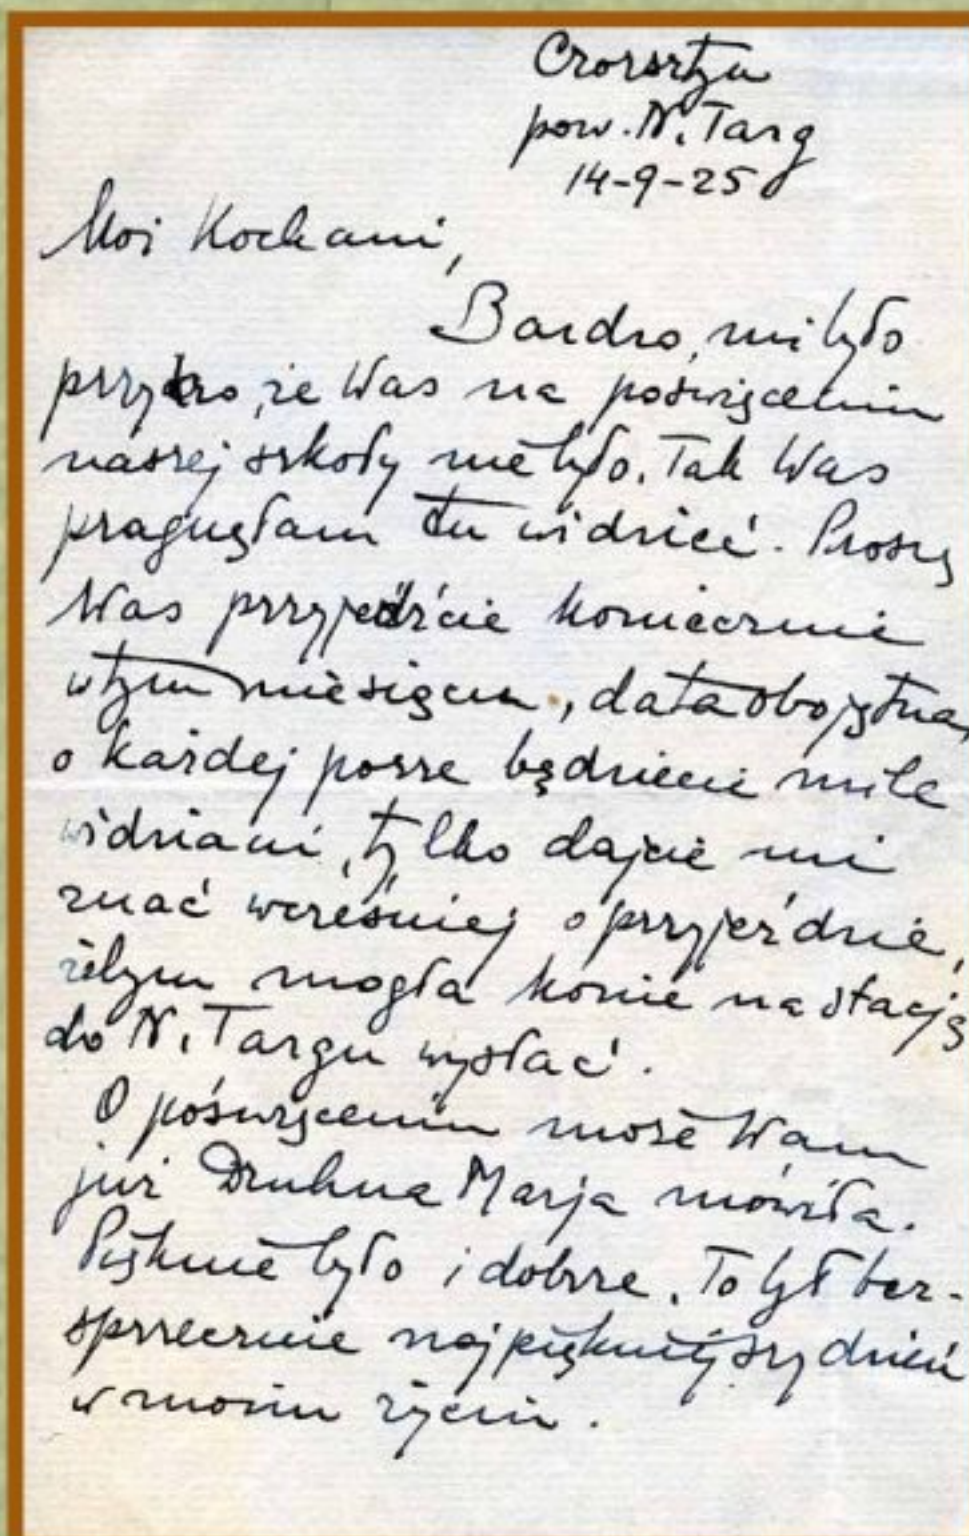 Czorsztyn
pow. N. Targ
14-9-25
Moi Kochani,
Bardzo, mi było
przykro, że Was na poświęceniu
naszej szkoły nie było. Tak Was
pragnęłam tu widzieć. Proszę
Was przyjedźcie koniecznie
w tym miesiącu, data obojętna,
o każdej porze będziecie mile
widziani, tylko dajcie mi
znać wcześniej o przyjeździe,
żebym mogła konie na stację
do N. Targu wysłać.
O poświęceniu może Wam
już Druhna Marja mówiła.
Pięknie było i dobrze. To był bez-
sprzecznie najpiękniejszy dzień
w moim życiu.